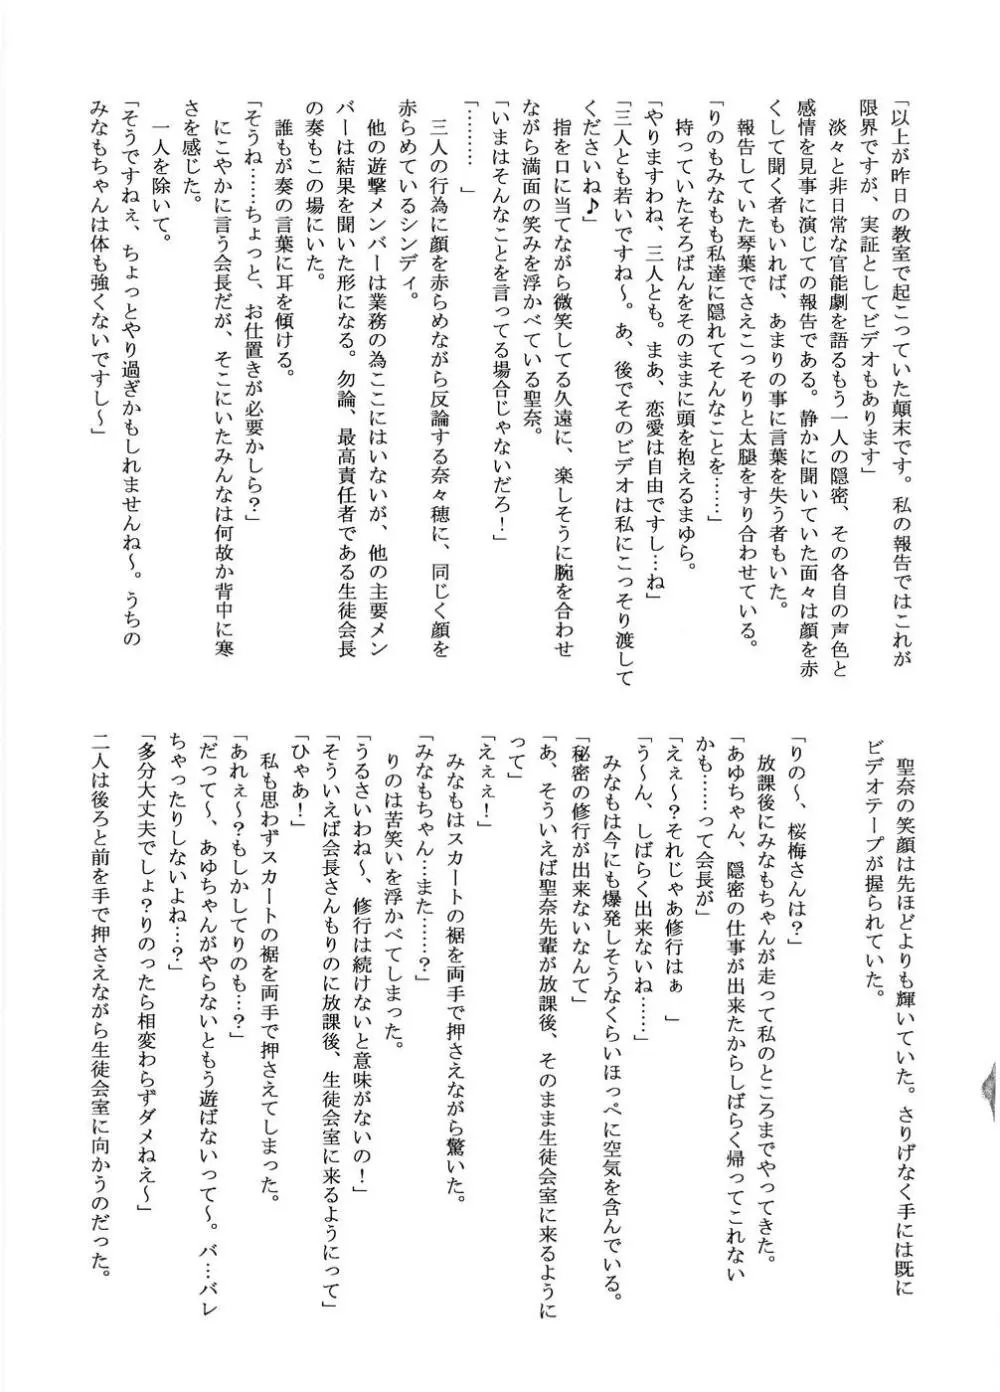 「以上が昨日の教室で起こっていた顛末です。私の報告ではこれが
限界ですが、実証としてビデオもあります」
淡々と非日常な官能劇を語るもう一人の隠密、その各自の声色と
感情を見事に演じての報告である。静かに聞いていた面々は顔を赤
くして聞く者もいれば、あまりの事に言葉を失う者もいた。
報告していた琴葉でさえこっそりと太腿をすり合わせている。
「りのもみなもも私達に隠れてそんなことを……」
持っていたそろばんをそのままに頭を抱えるまゆら。
「やりますわね、三人とも。まあ、恋愛は自由ですし…ね」
「三人とも若いですね〜。あ、後でそのビデオは私にこっそり渡して
くださいね♪」
指を口に当てながら微笑してる久遠に、楽しそうに腕を合わせ
ながら満面の笑みを浮かべている聖奈。
「いまはそんなことを言ってる場合じゃないだろ！」
「………」
三人の行為に顔を赤らめながら反論する奈々穂に、同じく顔を
赤らめているシンディ。
他の遊撃メンバーは業務の為ここにはいないが、他の主要メン
バーは結果を聞いた形になる。勿論、最高責任者である生徒会長
の奏もこの場にいた。
誰もが奏の言葉に耳を傾ける。
「そうね……ちょっと、お仕置きが必要かしら？」
にこやかに言う会長だが、そこにいたみんなは何故か背中に寒
さを感じた。
一人を除いて。
「そうですねぇ、ちょっとやり過ぎかもしれませんね〜。うちの
みなもちゃんは体も強くないですし〜」
聖奈の笑顔は先ほどよりも輝いていた。さりげなく手には既に
ビデオテープが握られていた。
「りの〜、桜梅さんは？」
放課後にみなもちゃんが走って私のところまでやってきた。
「あゆちゃん、隠密の仕事が出来たからしばらく帰ってこれない
かも……って会長が」
「えぇ〜？それじゃあ修行はぁ」
「う〜ん、しばらく出来ないね……」
みなもは今にも爆発しそうなくらいほっぺに空気を含んでいる。
「秘密の修行が出来ないなんて」
「あ、そういえば聖奈先輩が放課後、そのまま生徒会室に来るように
って」
「えぇぇ！」
みなもはスカートの裾を両手で押さえながら驚いた。
「みなもちゃん…また……？」
りのは苦笑いを浮かべてしまった。
「うるさいわね〜、修行は続けないと意味がないの！」
「そういえば会長さんもりのに放課後、生徒会室に来るようにって」
「ひゃあ！」
私も思わずスカートの裾を両手で押さえてしまった。
「あれぇ〜？もしかしてりのも…？」
「だって〜、あゆちゃんがやらないともう遊ばないって〜。バ…バレ
ちゃったりしないよね…？」
「多分大丈夫でしょ？りのったら相変わらずダメねえ〜」
二人は後ろと前を手で押さえながら生徒会室に向かうのだった。